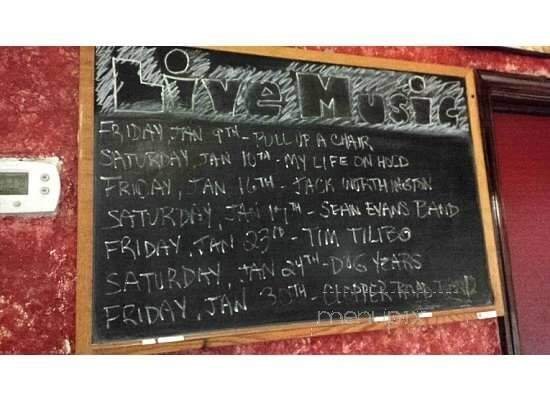 Live Music
FRIDAY, JAN 9TH - PULL UP A CHAIR
SATURDAY, JAN 10TH - MY LIFE ON HOLD
FRIDAY, JAN 16TH - JACK WORTHINGTON
SATURDAY, JAN 17TH - SEAN EVANS BAND
FRIDAY, JAN 23RD - TIM TILTEO
SATURDAY, JAN 24TH - DOG YEARS
FRIDAY, JAN 30TH -
menupix